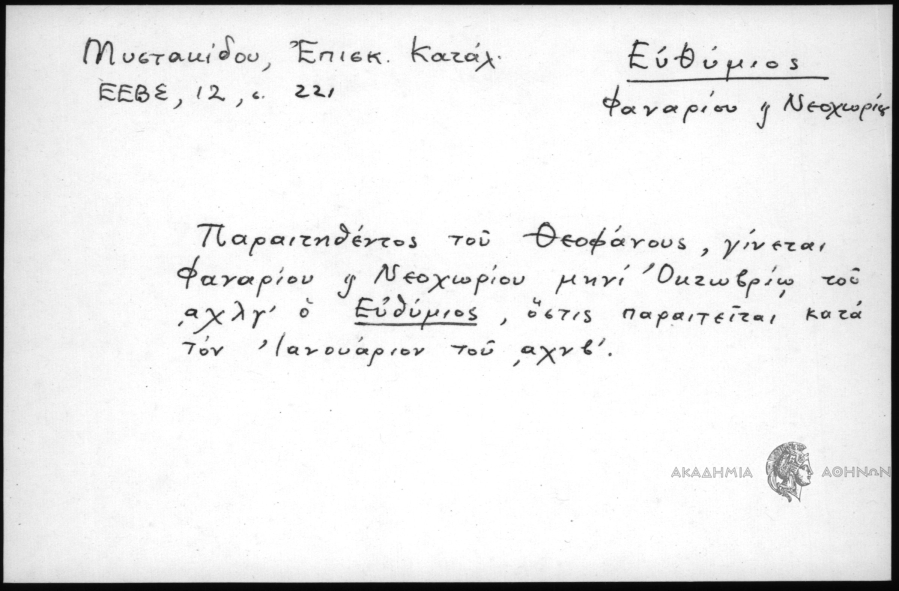 Μυστακίδου, Ἐπισκ. Κατάλ.
ΕΕΒΣ, 12, σ. 221
Εὐθύμιος
Φαναρίου ἢ Νεοχωρίου
Παραιτηθέντος τοῦ Θεοφάνους, γίνεται
Φαναρίου ἢ Νεοχωρίου μηνὶ Ὀκτωβρίῳ τοῦ
͵αχλγʹ ὁ Εὐθύμιος, ὅστις παραιτεῖται κατὰ
τὸν Ἰανουάριον τοῦ ͵αχνβʹ.
ΑΚΑΔΗΜΙΑ ΑΘΗΝΩΝ